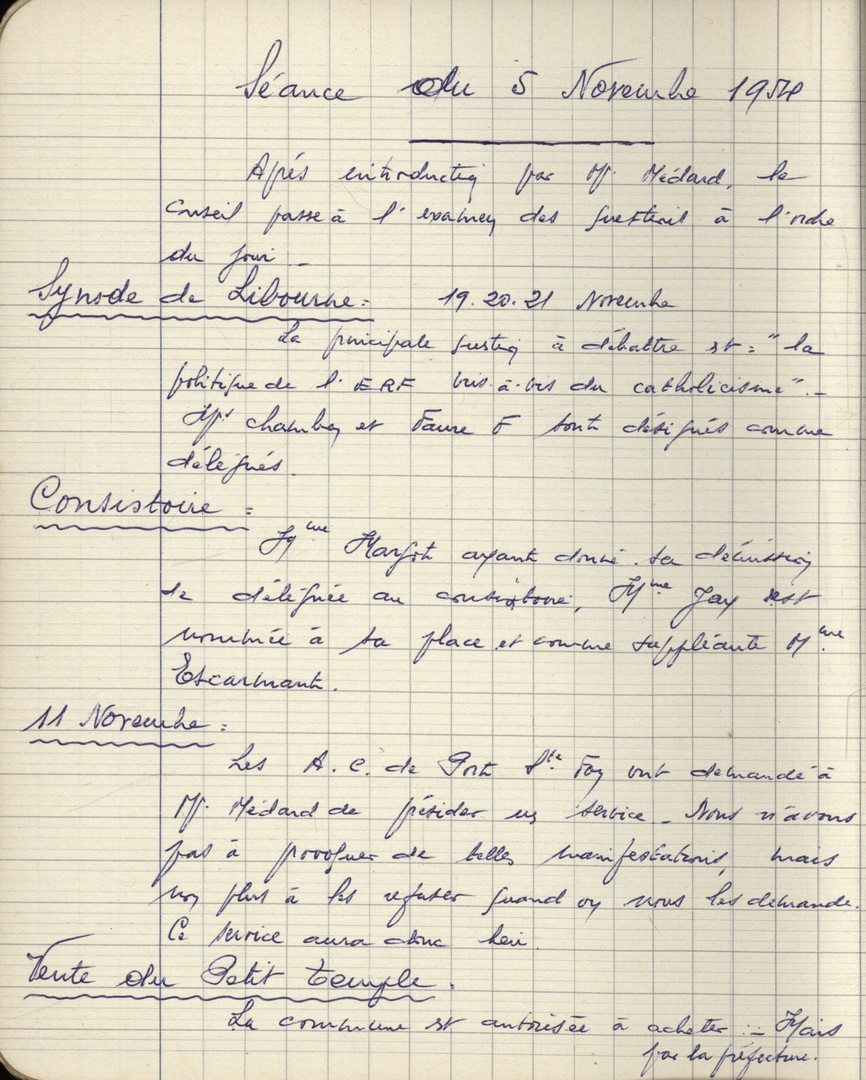 Séance du 5 Novembre 1954
Après introduction par Mr. Médard, le
Conseil passe à l'examen des questions à l'ordre
du jour _
Synode de Libourne : 19.20.21 Novembre
La principale question à débattre est : "la
politique de l'ERF vis-à-vis du catholicisme" . _
Mrs Chambon et Faure F sont désignés comme
délégués.
Consistoire :
Mme Margot ayant donné sa démission
de déléguée au consistoire, Mme Jay est
nommée à sa place et comme suppléante Mme
Escarmant.
11 Novembre :
Les A.C. de Port Ste Foy ont demandé à
Mr. Médard de présider un service _ Nous n'avons
pas à provoquer de telles manifestations, mais
non plus à les refuser quand on nous les demande.
Ce service aura donc lieu.
Vente du Petit Temple.
La commune est autorisée à acheter . _ Mais
par la préfecture.